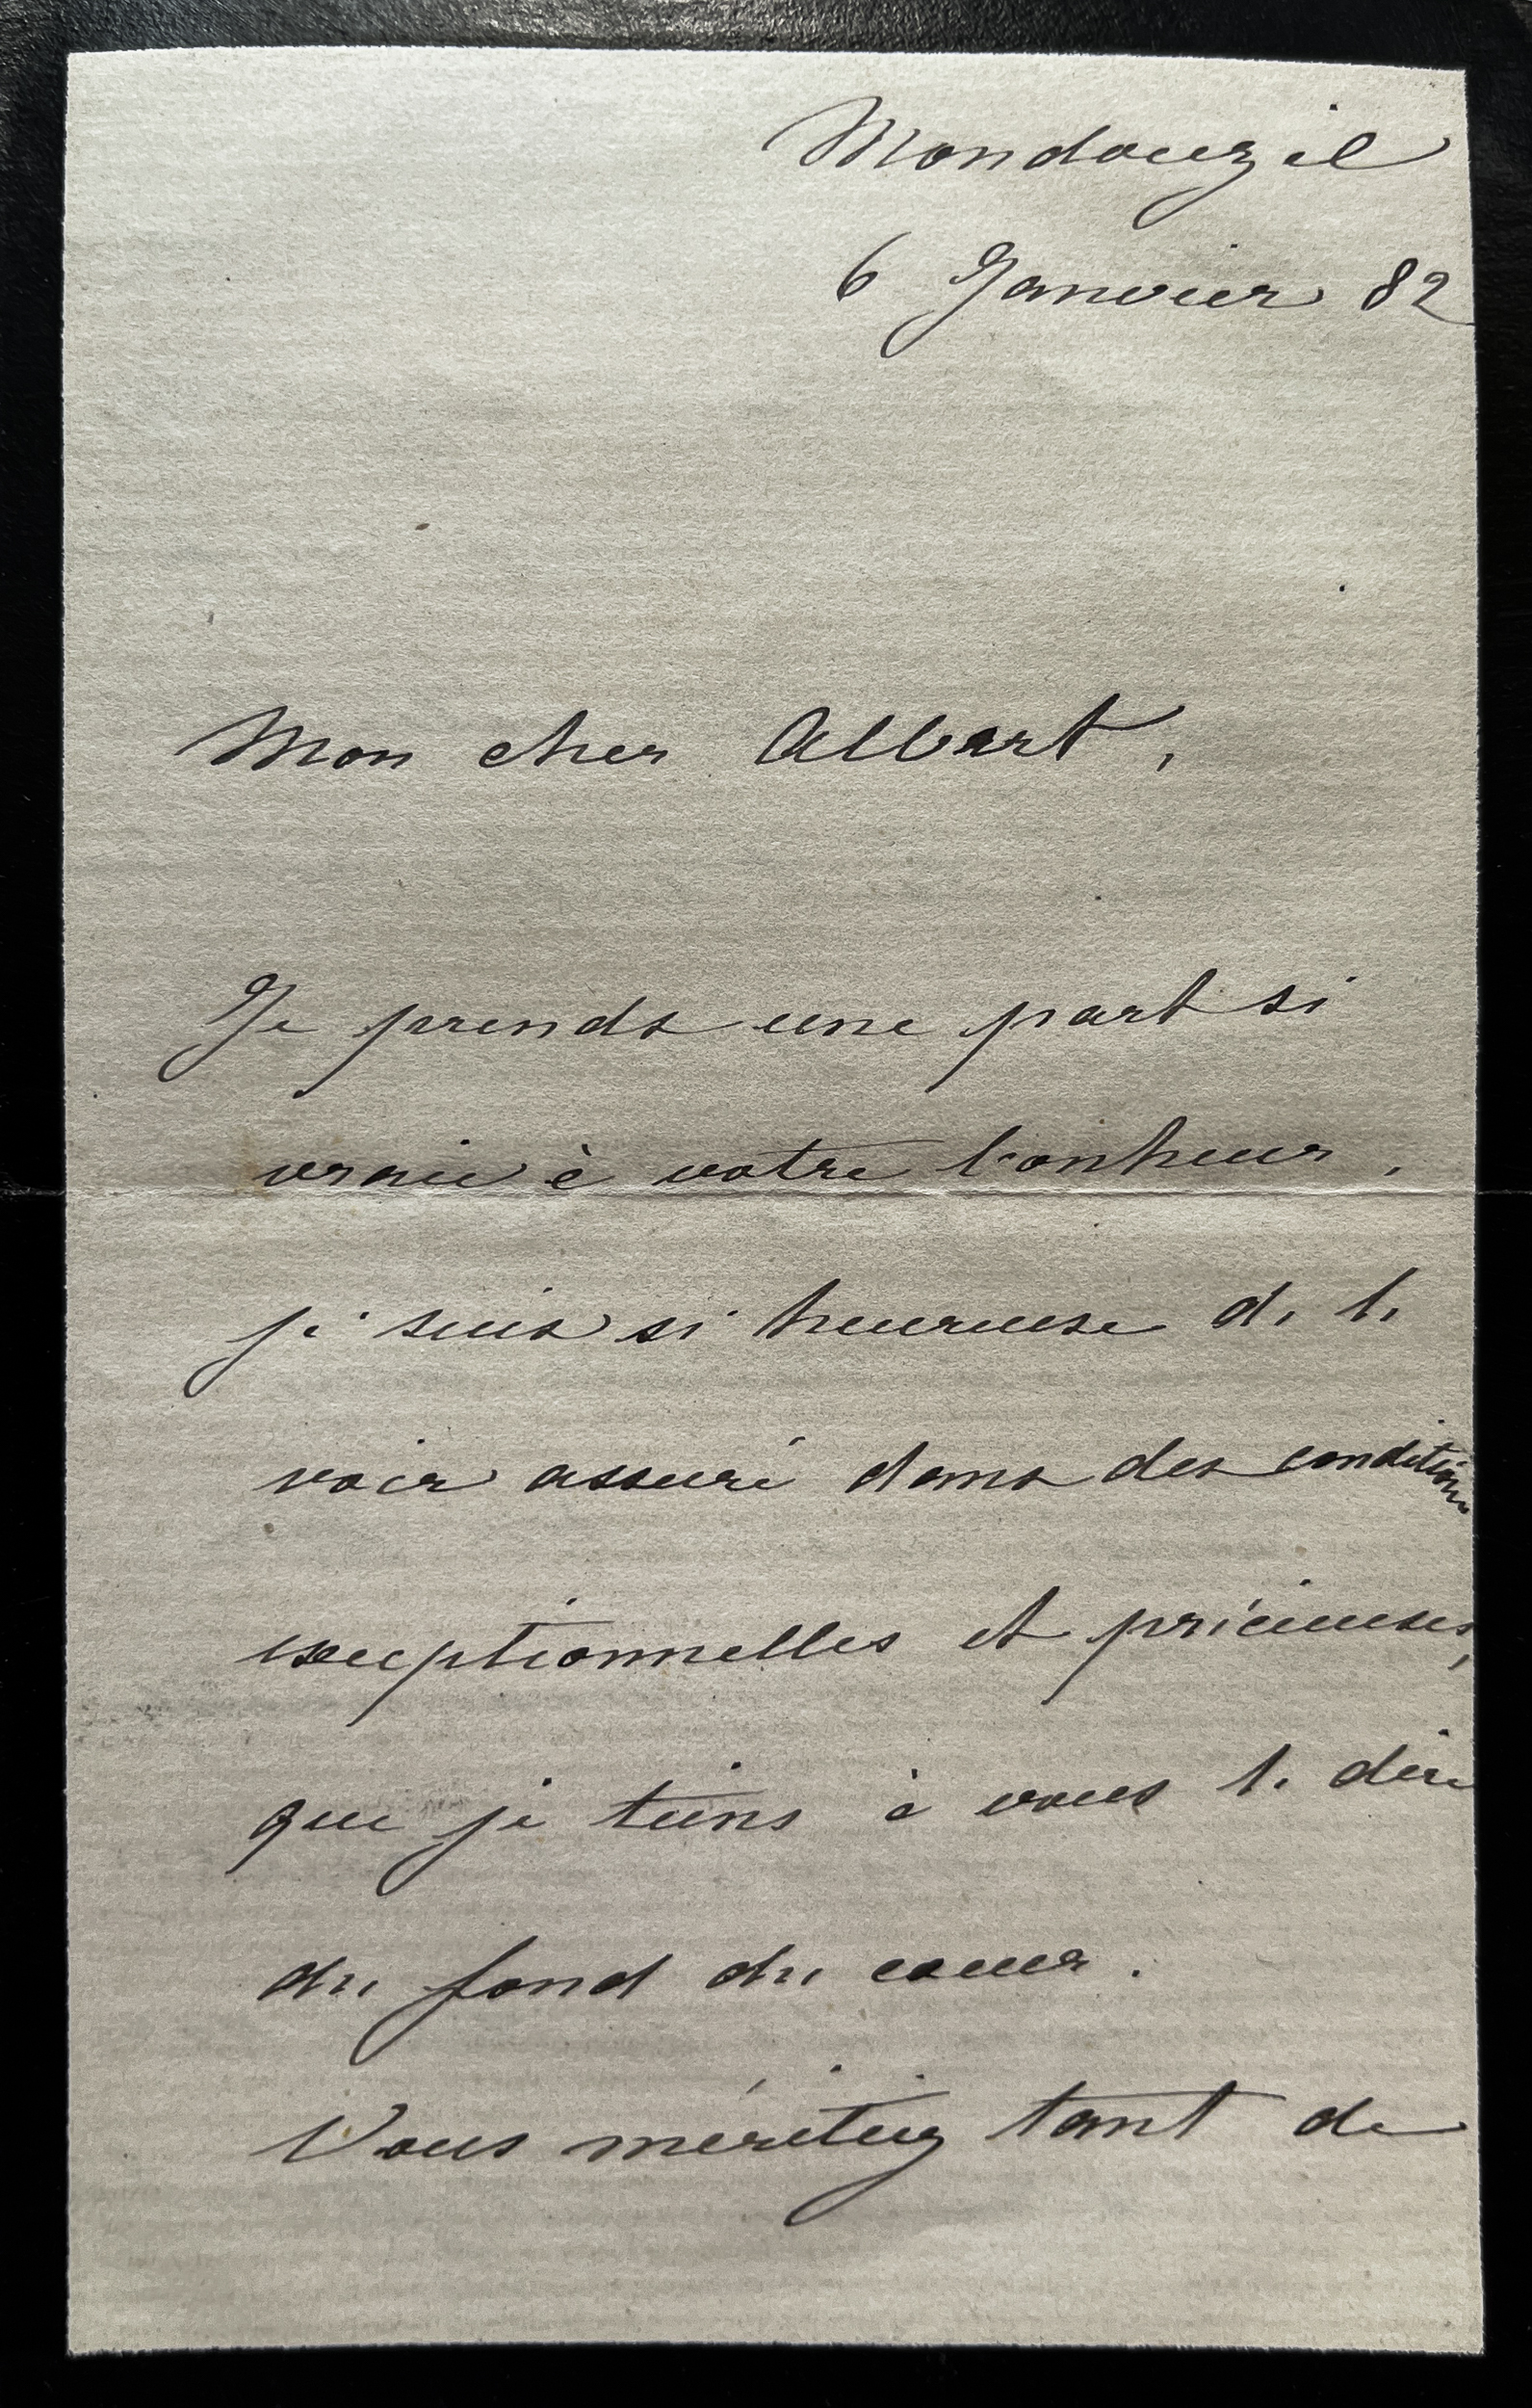 Mondouzil
6 Janvier 82
Mon cher Albert,
Je prends une part si
vraie à votre bonheur,
je suis si heureuse de le
voir assuré dans des conditions
exceptionnelles et précieuses,
que je tiens à vous le dire
du fond du coeur.
Vous méritiez tant de